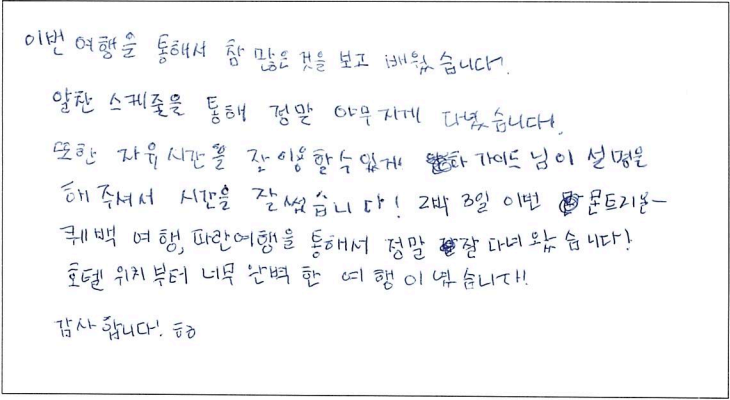 이번 여행을 통해서 참 많은 것을 보고 배웠습니다.
알찬 스케줄을 통해 정말 야무지게 다녔습니다.
또한 자유시간을 잘 이용할 수 있게 가이드님이 설명을
해 주셔서 시간을 잘 썼습니다! 2박 3일 이번 몬트리올-
퀘백 여행, 파란여행을 통해서 정말 잘 다녀왔습니다!
호텔 위치부터 너무 완벽한 여행이였습니다!
감사합니다!